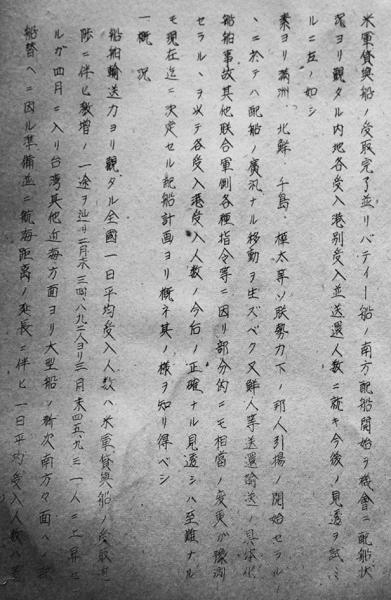 米軍貸與船ノ受取完了並ニリバテイー船ノ南方配船開始ヲ機會ニ配船状
況ヨリ觀タル内地各受入港別受入並送還人数ニ就キ今後ノ見透ヲ試ミ
ルニ左ノ如シ
素ヨリ満洲、北鮮、千島、樺太等ソ联勢力下ノ邦人引揚開始セラルヽ
ニ於テハ配船ノ廣汎ナル移動ヲ生ズベク又鮮人等送還輸送ノ具体化
船舶事故其他联合軍側各種指令等ニ因リ部分的ニモ相當ノ変更ガ豫測
セラルヽヲ以テ各受入港受入人数ノ今后ノ正確ナル見透シハ至難ナル
モ現在迄ニ決定セル配船計画ヨリ概ネ其ノ様ヲ知リ得ベシ
一概況
船舶輸送力ヨリ觀タル全國一日平均受入人数ハ米軍貸與船ノ受取
ニ伴ヒ激増ノ一途ヲ辿リ二月末三四八九二人ヨリ三月末四五九三一人ニ上昇セ
ルガ四月ニ入リ台湾其他近海方面ヨリ大型船ノ漸次南方々面ヘノ
船替ヘニ因ル準備並ニ航海距離ノ延長ニ伴ヒ一日平均受入人数